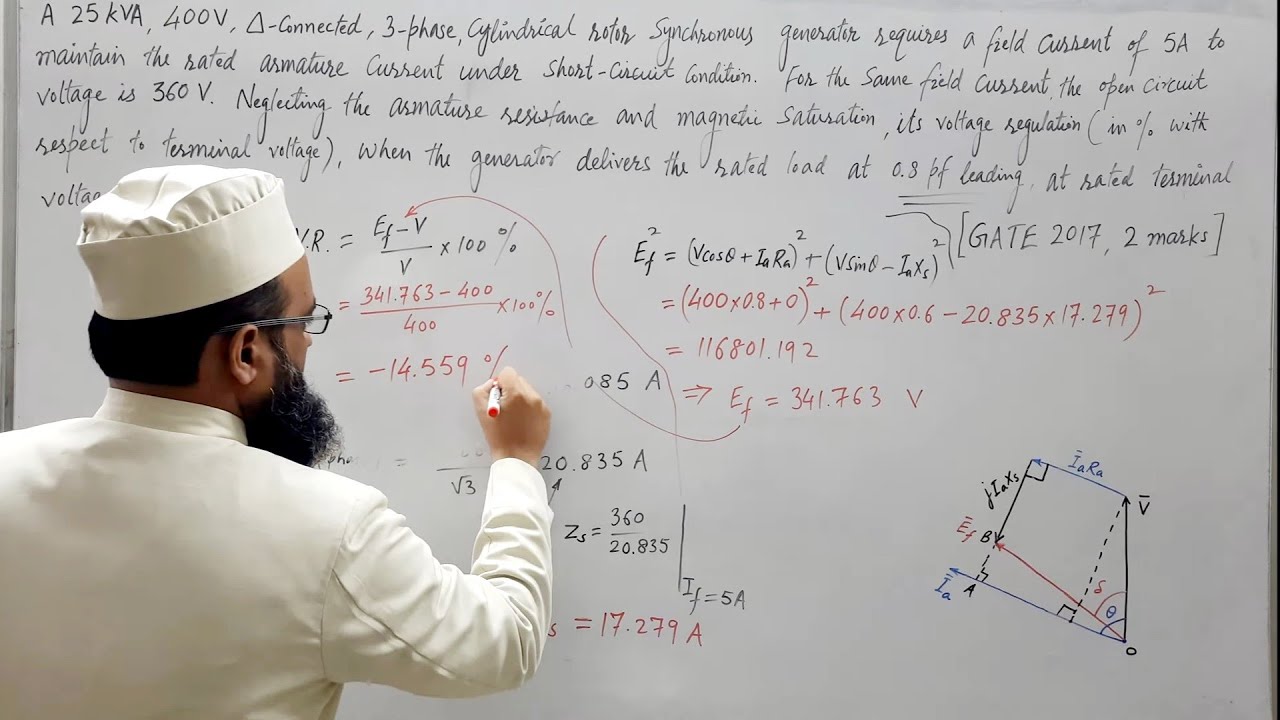 A 25 kVA, 400V, Δ-Connected, 3-phase, Cylindrical rotor Synchronous generator requires a field Current of 5A to
maintain the rated armature Current under Short-Circuit Condition. For the Same field Current, the open Circuit
voltage is 360 V. Neglecting the armature resistance and magnetic Saturation, its voltage regulation (in % with
respect to terminal voltage), when the generator delivers the rated load at 0.8 pf leading, at rated terminal
V.R. = (E_f - V)/V × 100 %
= (341.763 - 400)/400 × 100%
= -14.559 %
085 A
√3
20.835 A
Z_s = 360/20.835 | I_f = 5A
= 17.279 A
E_f² = (Vcosθ + I_aR_a)² + (Vsinθ - I_aX_s)²
[GATE 2017, 2 marks]
= (400×0.8+0)² + (400×0.6 - 20.835×17.279)²
= 116801.192
⇒ E_f = 341.763 V
Ī_aR_a
jĪ_aX_s
V̄
Ē_f
B
Ī_a
A
δ
θ
O